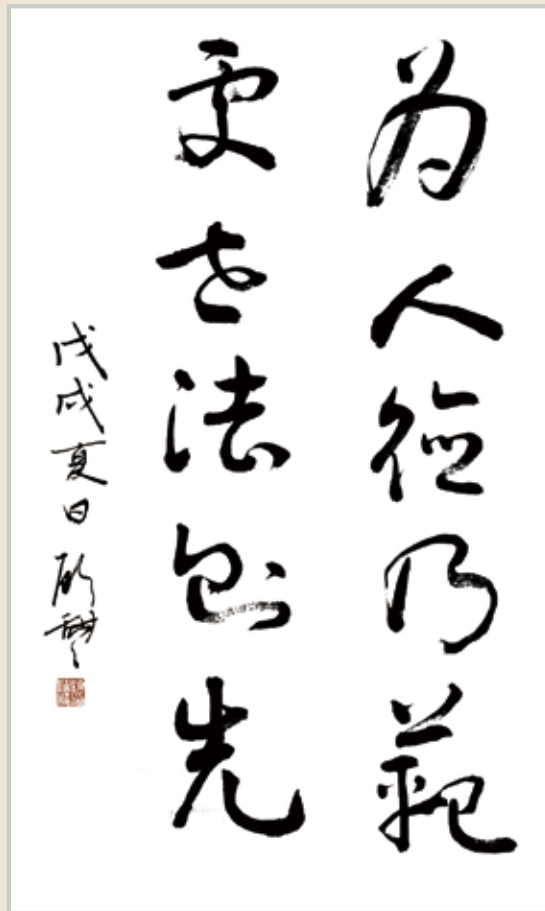 为人德乃范
处世法为先
戊戌夏日